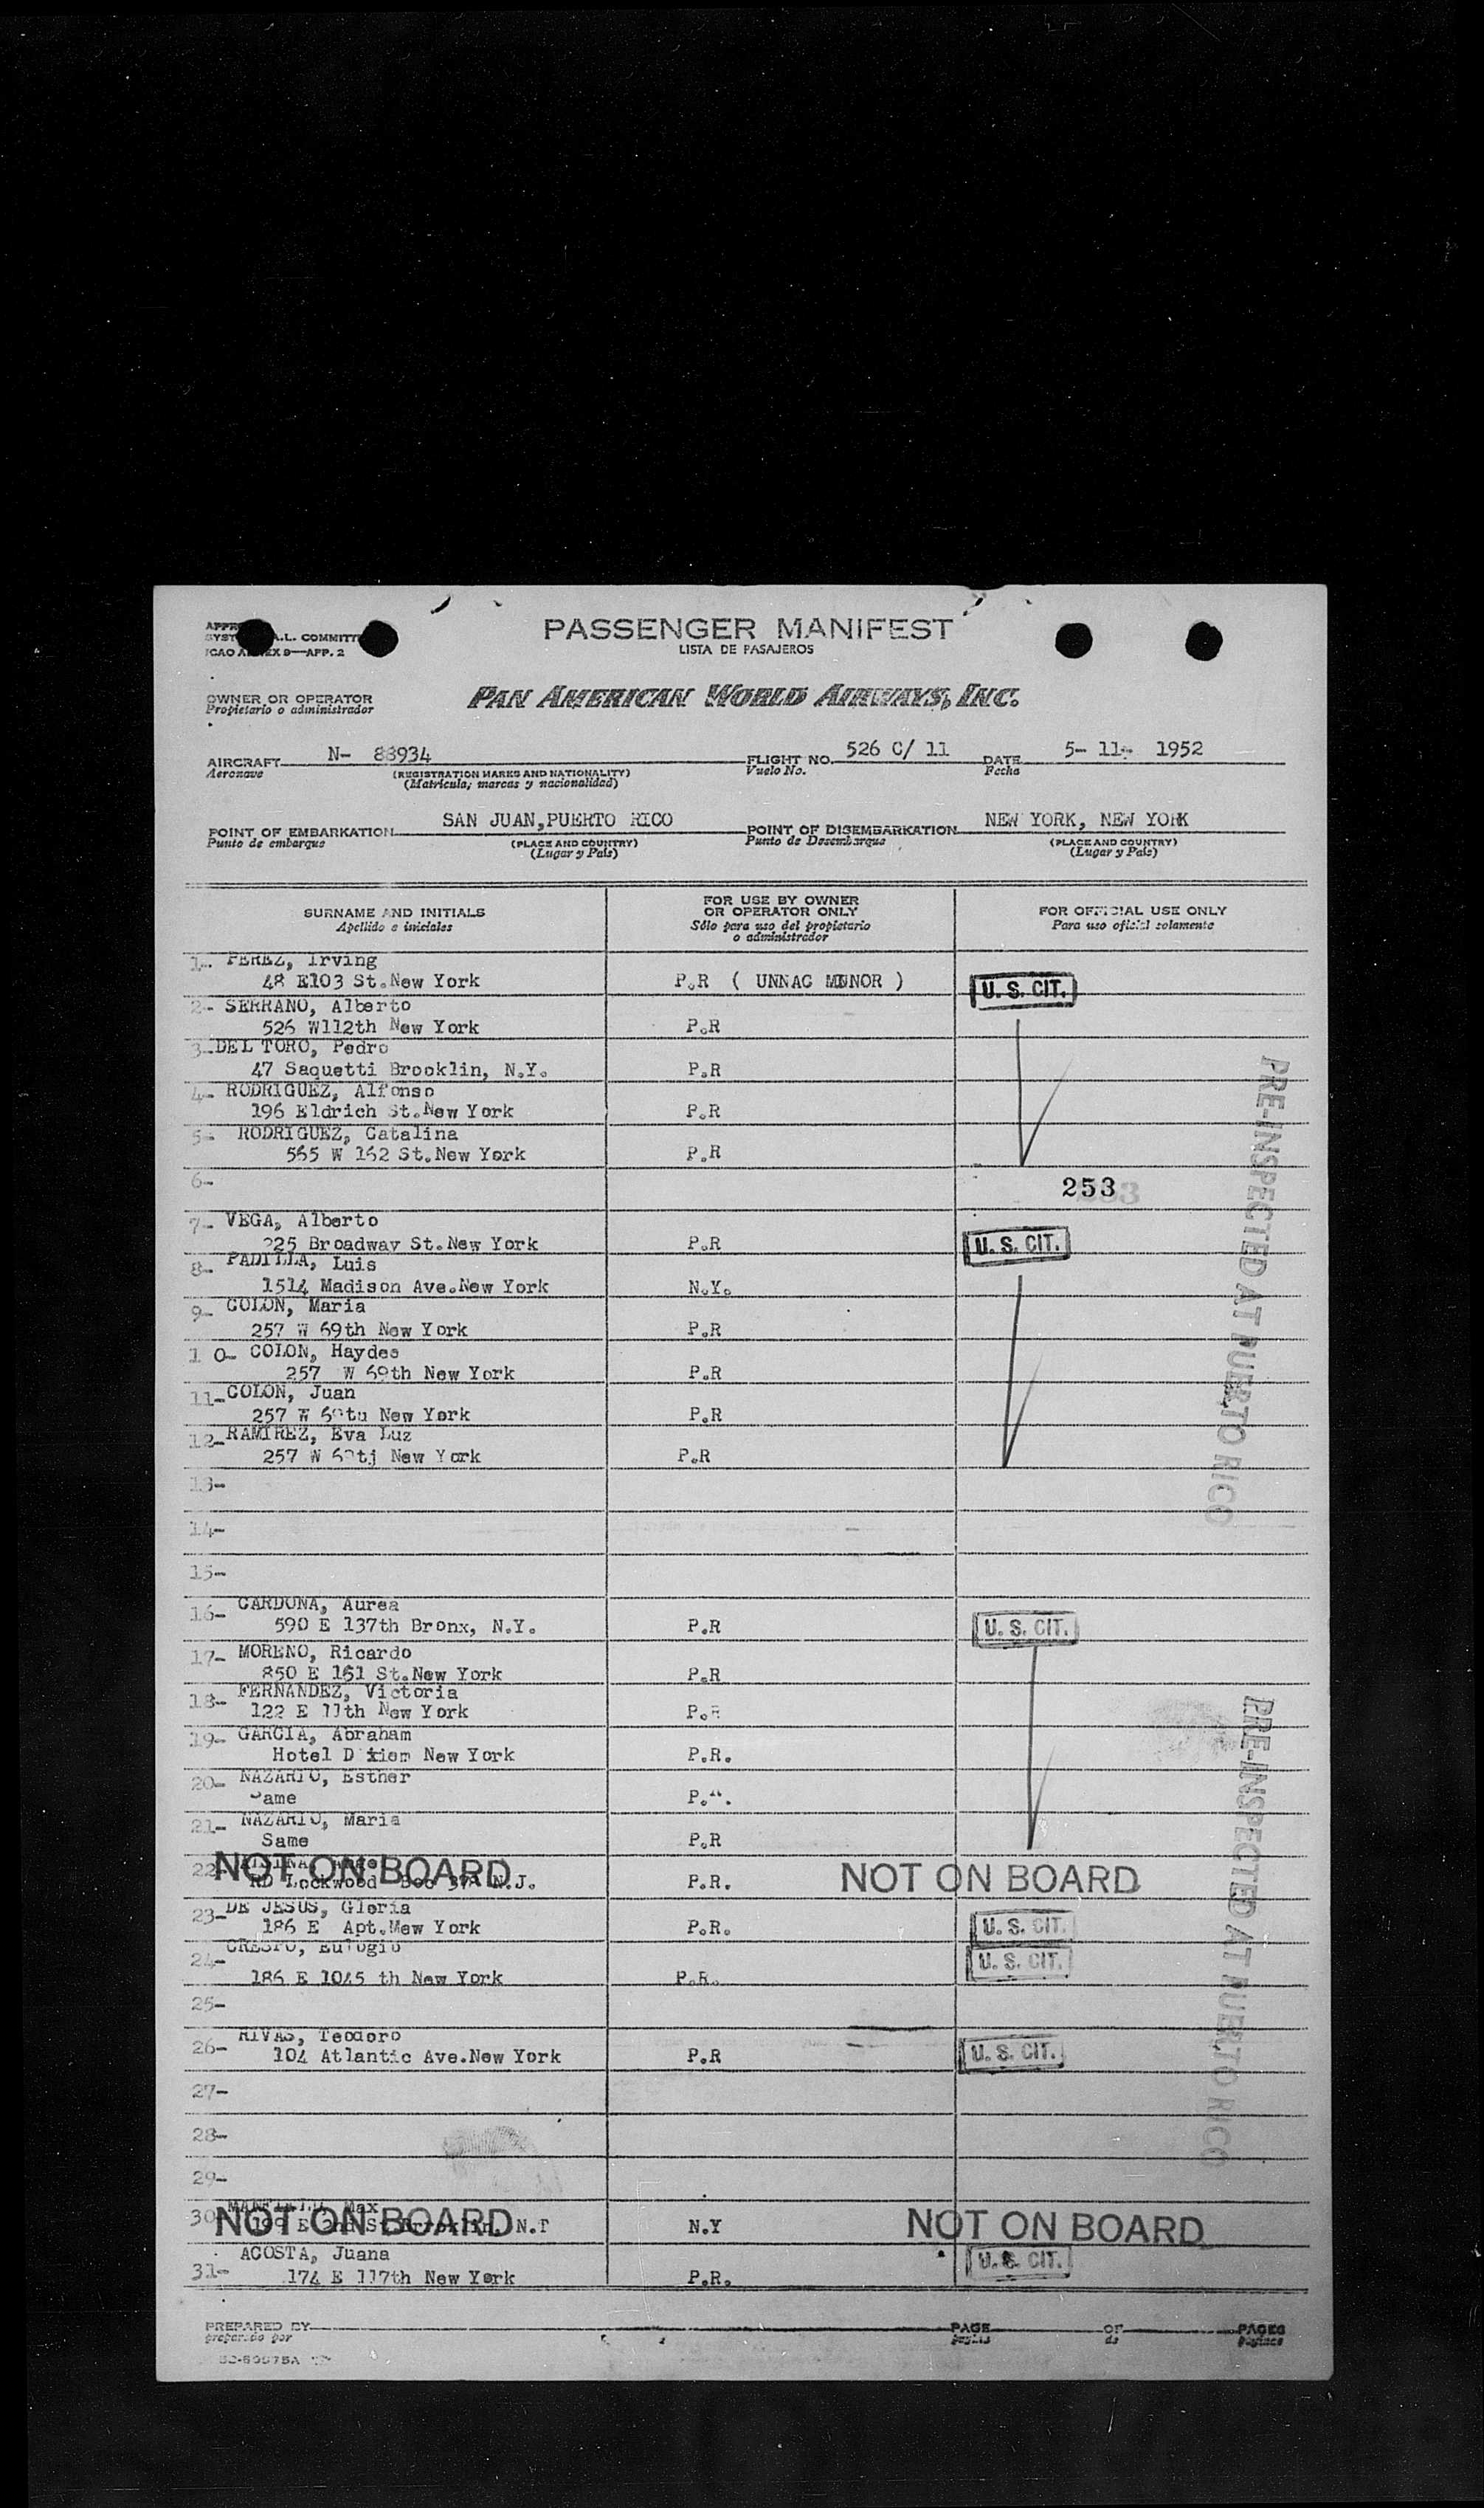 PASSENGER MANIFEST
LISTA DE PASAJEROS
A.L. COMMITT
ICAO ANNEX 9—APP. 2
OWNER OR OPERATOR
Propietario o administrador
PAN AMERICAN WORLD AIRWAYS, INC.
AIRCRAFT N- 88934 FLIGHT NO. 526 C/ 11 DATE 5- 11- 1952
Aeronave (REGISTRATION MARKS AND NATIONALITY) Vuelo No. Fecha
(Matricula; marcas y nacionalidad)
POINT OF EMBARKATION SAN JUAN,PUERTO RICO POINT OF DISEMBARKATION NEW YORK, NEW YORK
Punto de embarque (PLACE AND COUNTRY) Punto de Desembarque (PLACE AND COUNTRY)
(Lugar y País) (Lugar y País)
SURNAME AND INITIALS FOR USE BY OWNER OR OPERATOR ONLY FOR OFFICIAL USE ONLY
Apellido e iniciales Sólo para uso del propietario o administrador Para uso oficial solamente
1- PEREZ, Irving
48 E103 St.New York P.R ( UNNAC MINOR ) U. S. CIT.
2- SERRANO, Alberto
526 W112th New York P.R
3-DEL TORO, Pedro
47 Saquetti Brooklin, N.Y. P.R
4- RODRIGUEZ, Alfonso
196 Eldrich St.New York P.R
5- RODRIGUEZ, Catalina
565 W 162 St.New York P.R
6- 253
7- VEGA, Alberto
225 Broadway St.New York P.R U. S. CIT.
8- PADILLA, Luis
1514 Madison Ave.New York N.Y.
9- COLON, Maria
257 W 69th New York P.R
1 0- COLON, Haydee
257 W 69th New York P.R
11-COLON, Juan
257 W 69tu New York P.R
12-RAMIREZ, Eva Luz
257 W 69tj New York P.R
13-
14-
15-
16- CARDONA, Aurea
590 E 137th Bronx, N.Y. P.R U. S. CIT.
17- MORENO, Ricardo
850 E 161 St.New York P.R
18- FERNANDEZ, Victoria
122 E 11th New York P.R
19- GARCIA, Abraham
Hotel New York P.R.
20- NAZARIO, Esther
Same P.R.
21- NAZARIO, Maria
Same P.R
22- NOT ON BOARD NOT ON BOARD
RD Lockwood N.J. P.R.
23-DE JESUS, Gloria
186 E Apt.Mew York P.R. U. S. CIT.
24- CRESPO, Eulogio
186 E 1045 th New York P.R. U. S. CIT.
25-
26- RIVAS, Teodoro
104 Atlantic Ave.New York P.R U. S. CIT.
27-
28-
29-
30- Max NOT ON BOARD NOT ON BOARD
E 2nd St.Brooklin, N.Y
31- ACOSTA, Juana
174 E 117th New York P.R. U. S. CIT.
PRE-INSPECTED AT PUERTO RICO
PRE-INSPECTED AT PUERTO RICO
PREPARED BY PAGE OF PAGES
preparado por página de páginas